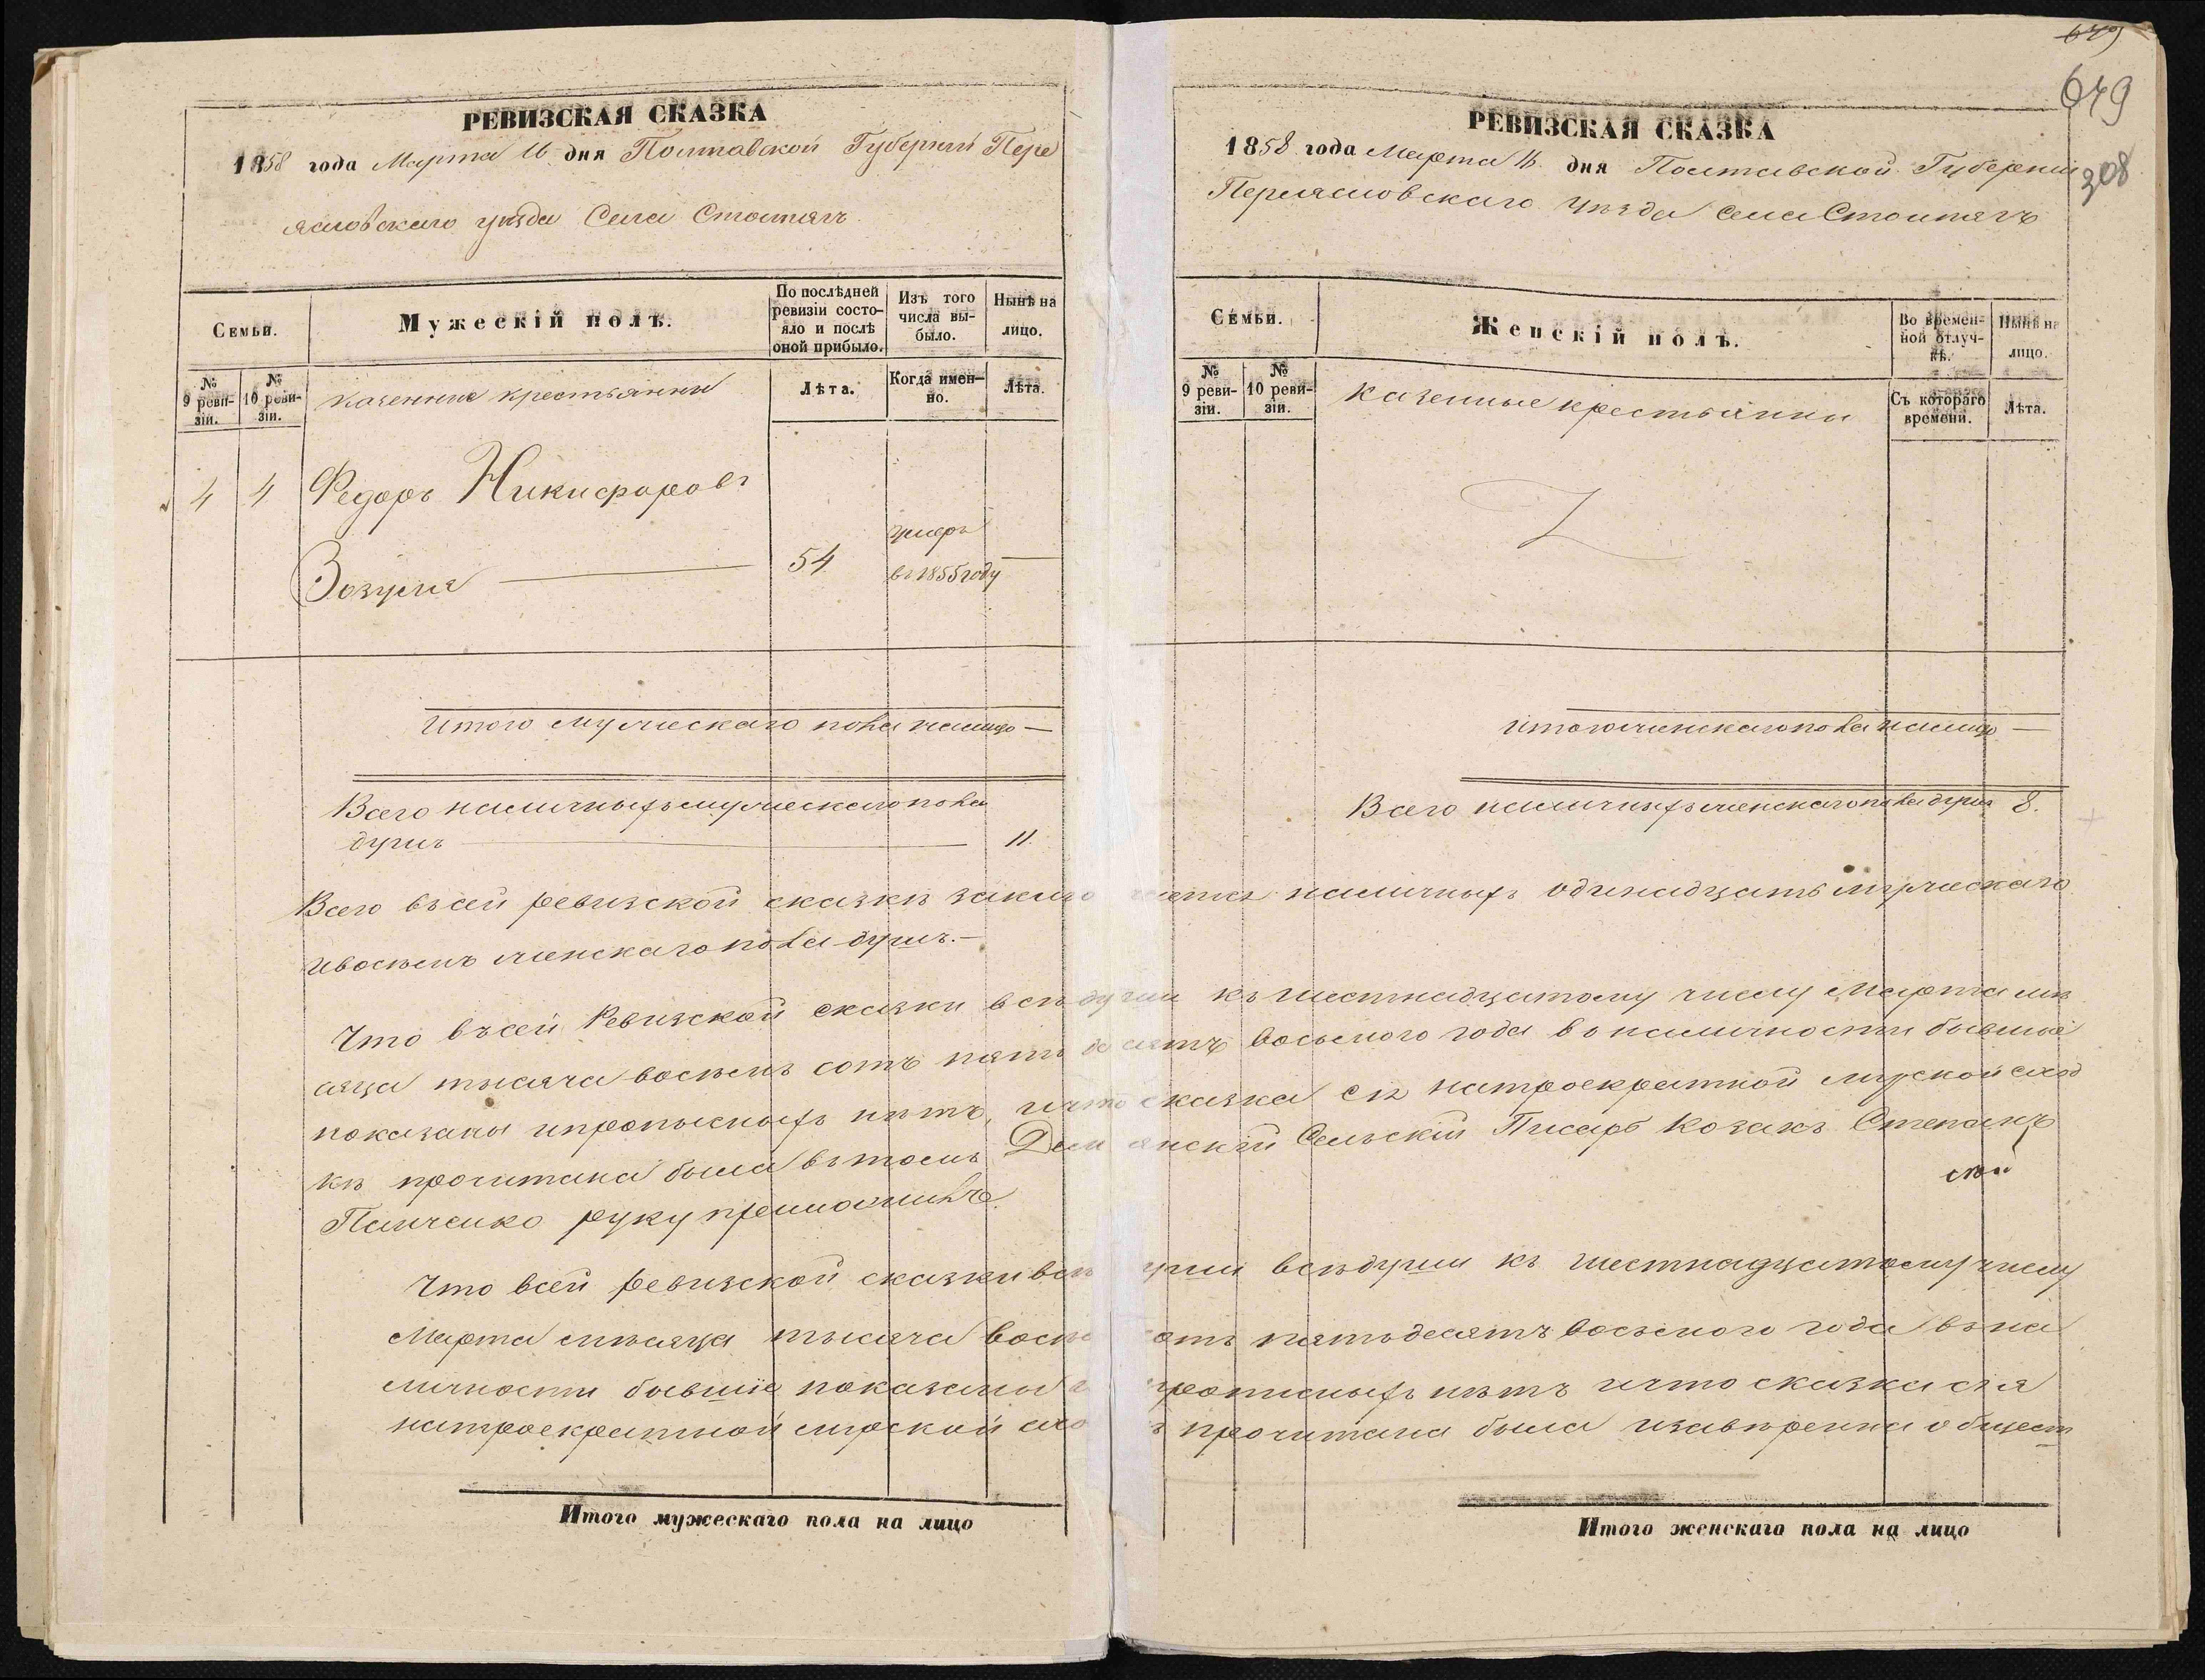 РЕВИЗСКАЯ СКАЗКА
1858 года Марта 16 дня Полтавской Губерніи Пере
яславскаго уѣзда Села Стовпягъ
Семьи.
Мужескій полъ.
По послѣдней ревизіи состояло и послѣ оной прибыло.
Изъ того числа выбыло.
Нынѣ на лицо.
№ 9 ревизіи.
№ 10 ревизіи.
казенные крестьянни
Лѣта.
Когда именно.
Лѣта.
4 4 Федоръ Никифоровъ
Зозуля 54 умеръ в 1855 году —
Итого мужескаго пола налицо —
Всего наличныхъ мужескаго пола
душъ 11.
РЕВИЗСКАЯ СКАЗКА
1858 года Марта 16 дня Полтавской Губерніи
Переясловскаго уѣзда села Стовпягъ
649
649
308
Семьи.
Женскій полъ.
Во временной отлучкѣ.
Нынѣ на лицо.
№ 9 ревизіи.
№ 10 ревизіи.
казенные крестьянки
Съ котораго времени.
Лѣта.
Итого женскаго пола налицо —
Всего наличныхъ женскаго пола душъ 8.
Всего въсей ревизской сказкѣ заключается наличныхъ одинадцать мужескаго
ивосемъ женскаго пола душъ.—
Что въсей Ревизской сказки всѣ души къ шестнадцатому числу Марта мѣ
сяца тысяча восемъ сотъ пятьдесятъ восьмого года в наличности бывшие
показаны ипрописныхъ нѣтъ, ичто сказка сія натроекратной мірской сход
кѣ прочитана была вътомъ Демянскій Сельскій Писарь Козакъ Степанъ
Панченко руку приложилъ.
Что всей Ревизской сказки всѣ души всѣ души къ шестнадцатому числу
Марта мѣсяца тысяча восемъ сотъ пятьдесятъ восьмого года въна
личности бывшіе показаны ипрописныхъ нѣтъ ичто сказка сія
натроекратной мірской сход прочитана была изавѣренна общест
Итого мужескаго пола на лицо
Итого женскаго пола на лицо